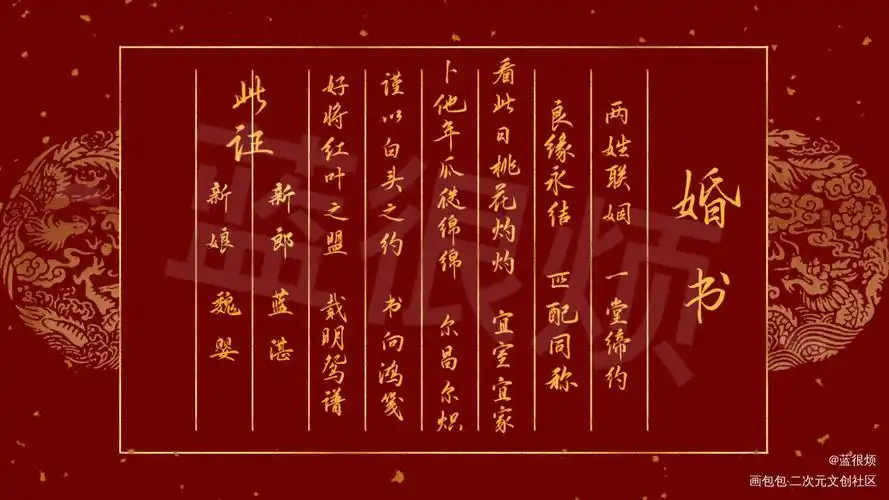 婚书
两姓联姻 一堂缔约
良缘永结 匹配同称
看此日桃花灼灼 宜室宜家
卜他年瓜瓞绵绵 尔昌尔炽
谨以白头之约 书向鸿笺
好将红叶之盟 载明鸳谱
此证
新郎 蓝湛
新娘 魏婴
蓝很烦
@蓝很烦
画包包·二次元文创社区